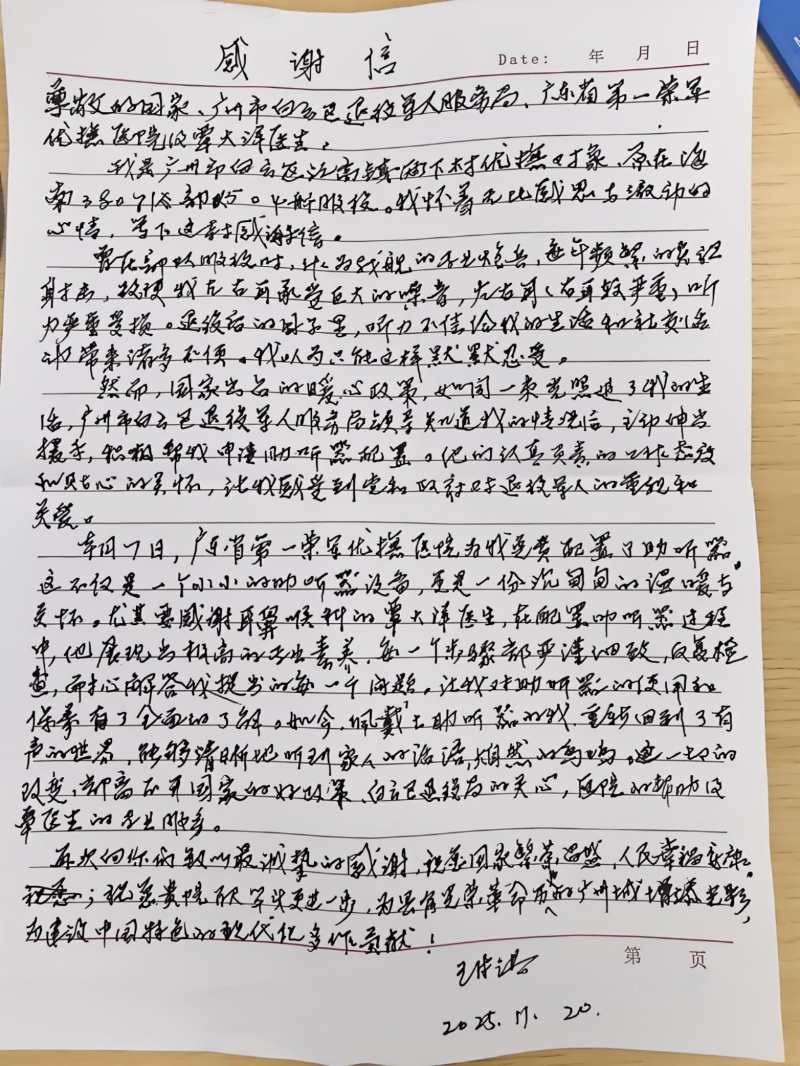 感谢信
Date: 年 月 日
尊敬的国家、广州市白云区退役军人服务局、广东省第一荣军
优抚医院及覃大洋医生:
我是广州市白云区江高镇两下村优抚对象,原在海
南38071部队。服役。我怀着无比感恩与激动的
心情,写下这封感谢信。
曾在部队服役时,作为战舰的专业炮兵,每年频繁的实弹
射击,致使我左右耳承受巨大的噪音,左右耳(右耳较严重)听
力严重受损。退役后的日子里,听力不佳给我的生活和社交活
动带来诸多不便。我以为只能这样默默忍受。
然而,国家出台的暖心政策,如同一束光照进了我的生
活,广州市白云区退役军人服务局领导知道我的情况后,主动伸出
援手,积极帮我申请助听器配置。他们认真负责的工作态度
和贴心的关怀,让我感受到党和政府对退役军人的重视和
关爱。
本月7日,广东省第一荣军优抚医院为我免费配置了助听器。
这不仅是一个小小的助听器设备,更是一份沉甸甸的温暖与
关怀。尤其要感谢耳鼻喉科的覃大洋医生,在配置助听器过程
中,他展现出极高的专业素养,每一个步骤都严谨细致,反复检
查,耐心解答我提出的每一个问题。让我对助听器的使用和
保养有了全面的了解。如今,佩戴上助听器的我,重新回到了有
声的世界,能够清晰地听到家人的话语,大自然的鸟鸣。这一切的
改变,都离不开国家的好政策、白云区退役局的关心,医院的帮助及
覃医生的专业服务。
再次向你们致以最诚挚的感谢,祝愿国家繁荣昌盛,人民幸福安康
;祝愿贵院百尺竿头更进一步,为具有光荣革命的广州城增添光彩,
为建设中国特色的现代化多作贡献!
第 页
2025.11.20.